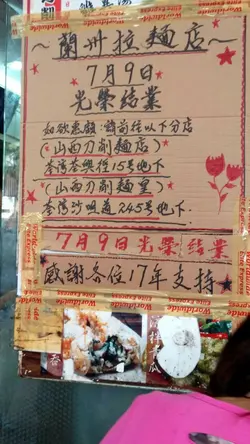 ~蘭州拉麵店~
7月9日
光榮結業
如欲惠顧:請前往以下分店
(山西刀削麵店)
荃灣荃樂徑15号地下
(山西刀削麵皇)
荃灣沙咀道245号地下.
7月9日光榮結業
感謝各位17年支持
Worldwide
Elite Express